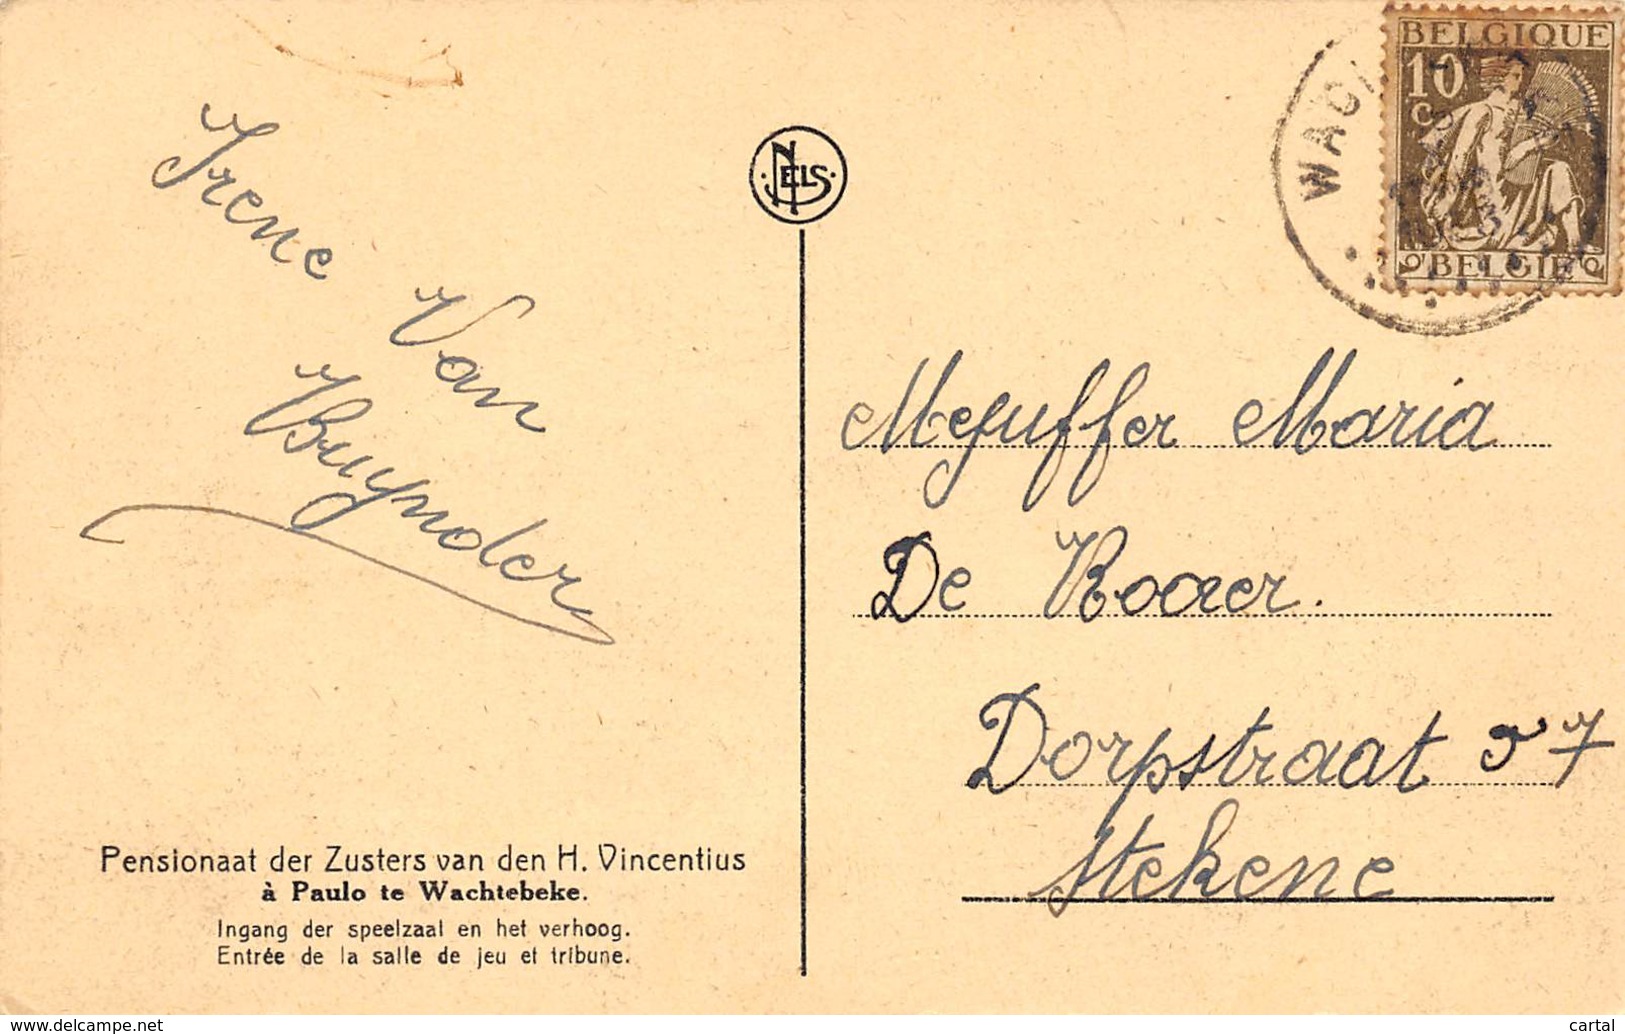 Irene Van
Bruynder
NELS
WACH
BELGIQUE
10
C
BELGIE
Mejuffer Maria
De Rooer.
Dorpstraat 57
Stekene
Pensionaat der Zusters van den H. Vincentius
à Paulo te Wachtebeke.
Ingang der speelzaal en het verhoog.
Entrée de la salle de jeu et tribune.
https://www.delcampe.net
cartal